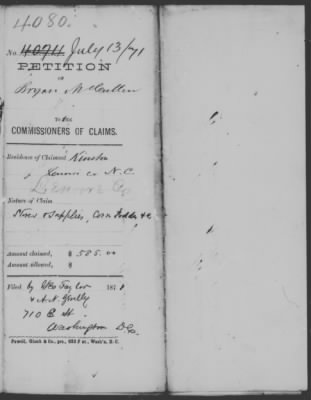 4080.
No. 4094 July 13/71
PETITION
OF
Bryan McCullen
TO THE
COMMISSIONERS OF CLAIMS.
Residence of Claimant Kinston
Lenoir co N.C.
Lenoir Co
Nature of Claim
Stores & Supplies, Corn Fodder &c
Amount claimed, $ 585.00
Amount allowed, $
Filed by Geo Taylor 187
& A. N.
710 E St
Washington D.C.
Powell, Ginck & Co., prs., 632 F st., Wash'n, D. C.